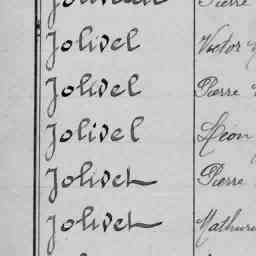 Pierre
Jolivel Victor
Jolivel Pierre
Jolivel Léon
Jolivet Pierre
Jolivet Mathurin